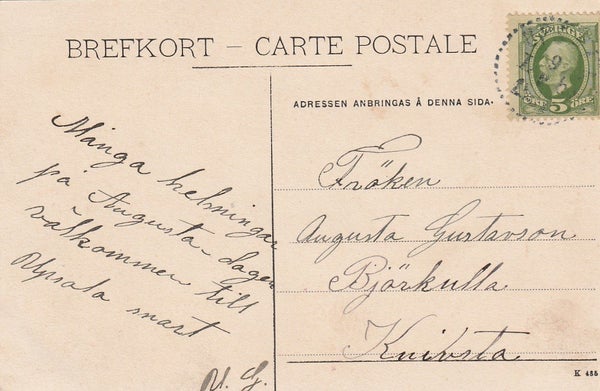 BREFKORT – CARTE POSTALE
SVERIGE
ÖRE 5 ÖRE
ADRESSEN ANBRINGAS Å DENNA SIDA.
Många helsningar
på Augusta-dagen
välkommen till
Upsala snart
Fröken
Augusta Gustavson
Björkulla
Knivsta
K 485